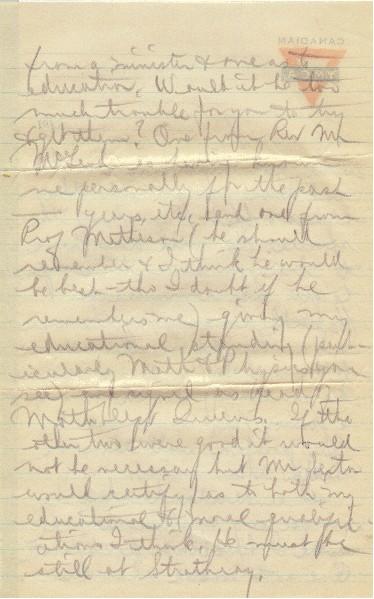 from a minister & one as to
education. Would it be too
much trouble for you to try
& get them? One from Rev Mr
McLeod as having known
me personally for the past
— years, etc, and one from
Prof Matheson (he should
remember & I think he would
be best - tho I doubt if he
remembers me) giving my
educational standing (part-
icularly Math & Physics you
see) and signed as head of
Math Dept Queens. If the
other two were good it would
not be necessary but Mr Sexton
would certify as to both my
educational & moral qualific-
ations I think. He must be
still at Strathroy.
CANADIAN
YMCA